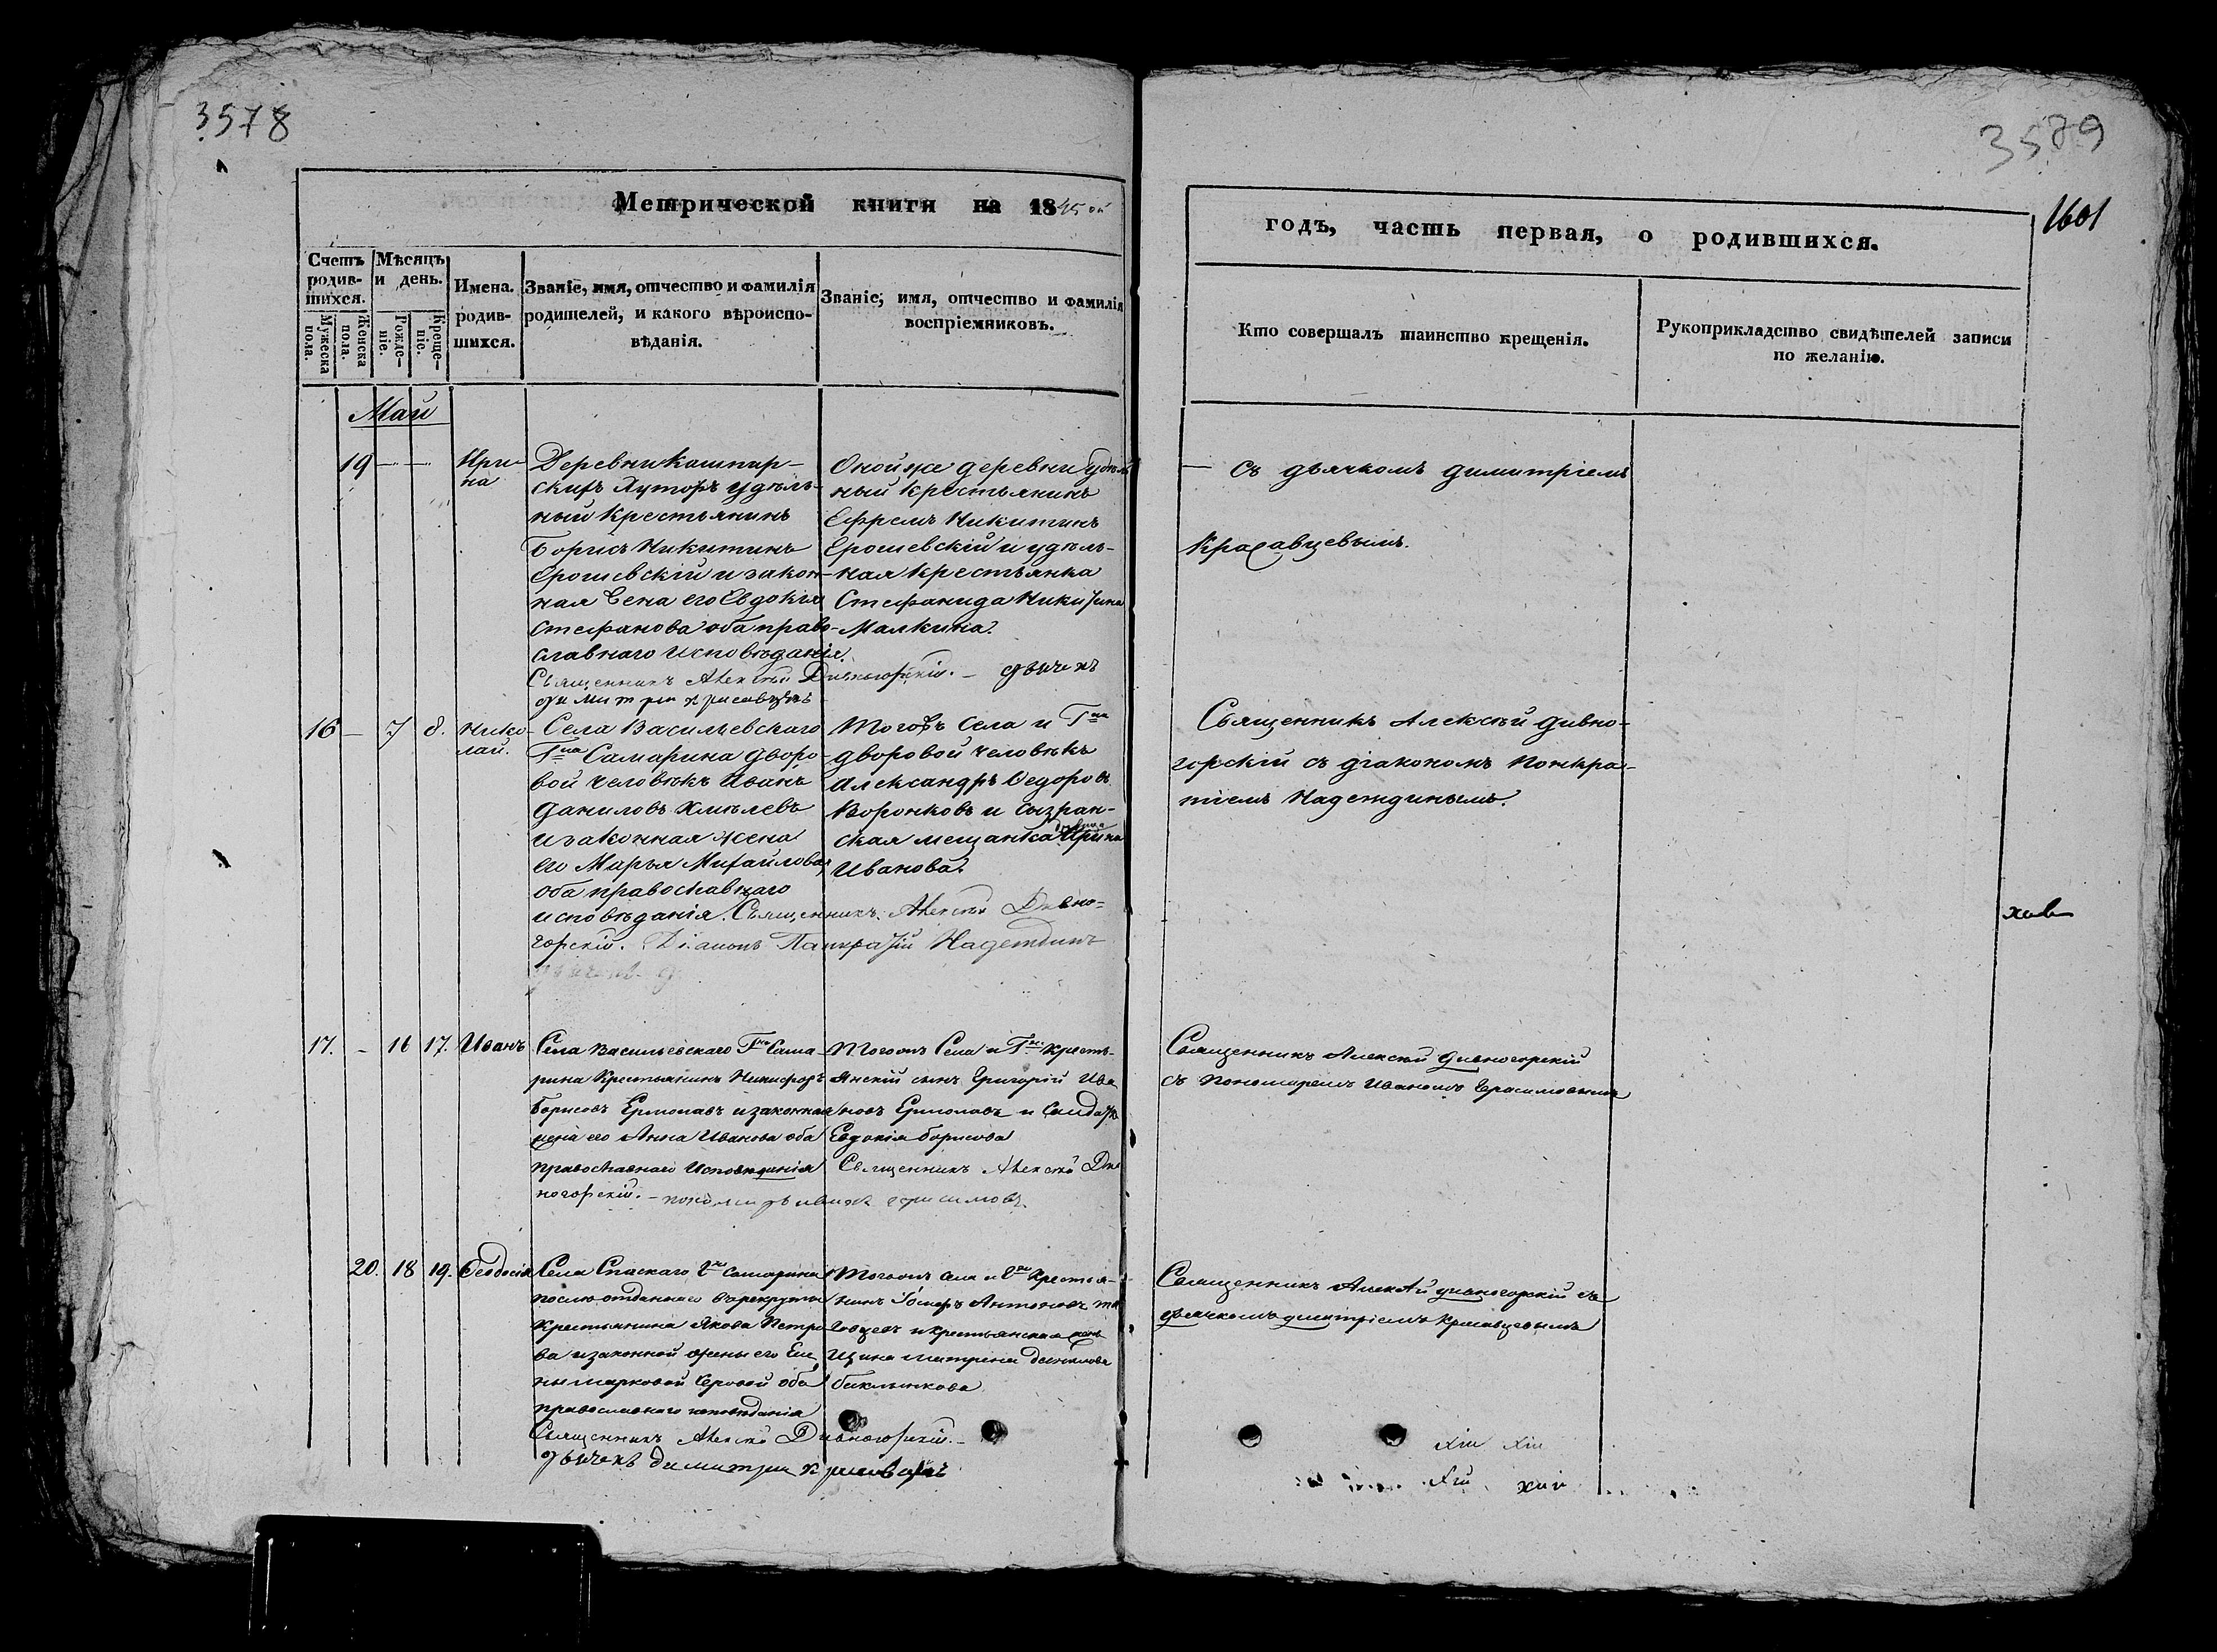 3578
3579
1601
Метрической книги на 1845 ой
годъ, часть первая, о родившихся.
Счетъ родив-шихся.
Мужеска пола.
Женска пола.
Мѣсяцъ и день.
Рожде-ніе.
Креще-ніе.
Имена родив-шихся.
Званіе, имя, отчество и фамилія
родителей, и какого вѣроиспо-
вѣданія.
Званіе, имя, отчество и фамилія
воспріемниковъ.
Кто совершалъ таинство крещенія.
Рукоприкладство свидѣтелей записи
по желанію.
Май
19 — —
Ири-
на
Деревни Кашпир-
скихъ Хуторъ удѣль-
ный Крестьянинъ
Борисъ Никитинъ
Ерошевскій и закон-
ная жена его Евдокія
Стефанова оба право-
славнаго Исповѣданія.
Священникъ Алексѣй Дивногорскій. — дьячекъ
димитрій красавцевъ
Оной же деревни удѣль
ный крестьянинъ
Ефремъ Никитинъ
Ерошевскій и удѣль-
ная крестьянка
Стефанида Никитина
Малкина.
— съ дьячкомъ димитріемъ
Красавцевымъ.
16 — 7 8.
Нико-
лай.
Села Васильевскаго
Гна Самарина дворо-
вой человѣкъ Иванъ
Даниловъ Хмѣлевъ
и законная жена
его Марья Михайлова
оба православнаго
исповѣданія. Священникъ Алексѣй Дивно=
горскій. Діаконъ Панкратій Надеждинъ
Тогожъ Села и Гна
дворовой человѣкъ
Александръ Ѳедоровъ
Воронковъ и Сызран-
ская мещанка Ирина
Иванова.
Священникъ Алексѣй Дивно-
горскій съ діакономъ Понкра-
тіемъ Надеждинымъ.
17. - 16 17. Иванъ
Села Васильевскаго Гна Сама-
рина Крестьянинъ Никифоръ
Борисовъ Ермолавъ и законная
жена его Анна Иванова оба
православнаго Исповѣданія
Тогожъ Села и Гна Кресть-
янскій сынъ Григорій Ива
новъ Ермолавъ и
Евдокія Борисова
Священникъ Алексѣй Див
ногорскій. — пономарь иванъ герасимовъ
Священникъ Алексѣй Дивногорскій
съ Пономаремъ Иваномъ Герасимовымъ
20. 18 19. Ѳеодосія
Села Спаскаго Гна Самарина
послѣ отданнаго въ рекруты
Крестьянина Якова Петро
ва и законной жены его Еле
ны Марковой Серовой оба
православнаго исповѣданія
Священникъ Алексѣй Дивногорскій. —
дьячекъ димитрій красавцевъ
Тогожъ села и Гна Крестья-
нинъ Антоновъ
и крестьянская жен
щина Матрена Данилова
Священникъ Алексѣй дивногорскій съ
дьячкомъ димитріемъ Красавцевымъ